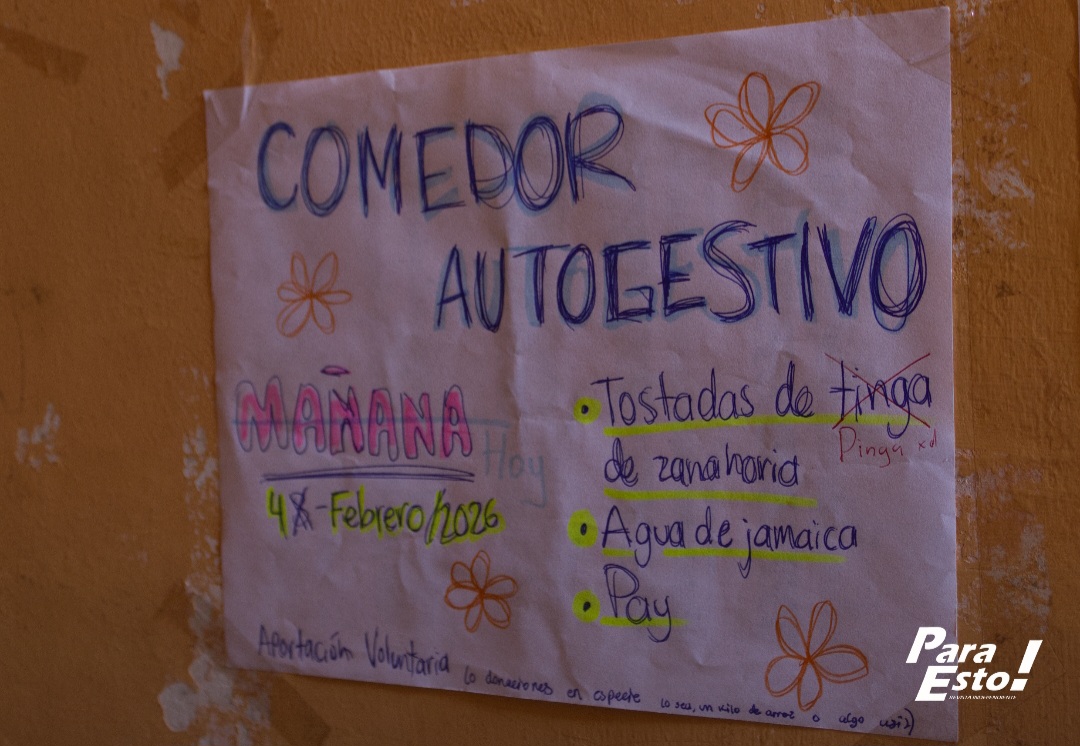 COMEDOR
AUTOGESTIVO
MAÑANA
Hoy
4 -Febrero/2026
• Tostadas de tinga
Pinga xd
de zanahoria
• Agua de jamaica
• Pay
Aportación Voluntaria (o donaciones en especie (o sea, un kilo de arroz o algo así))
Para Esto!
REVISTA INDEPENDIENTE